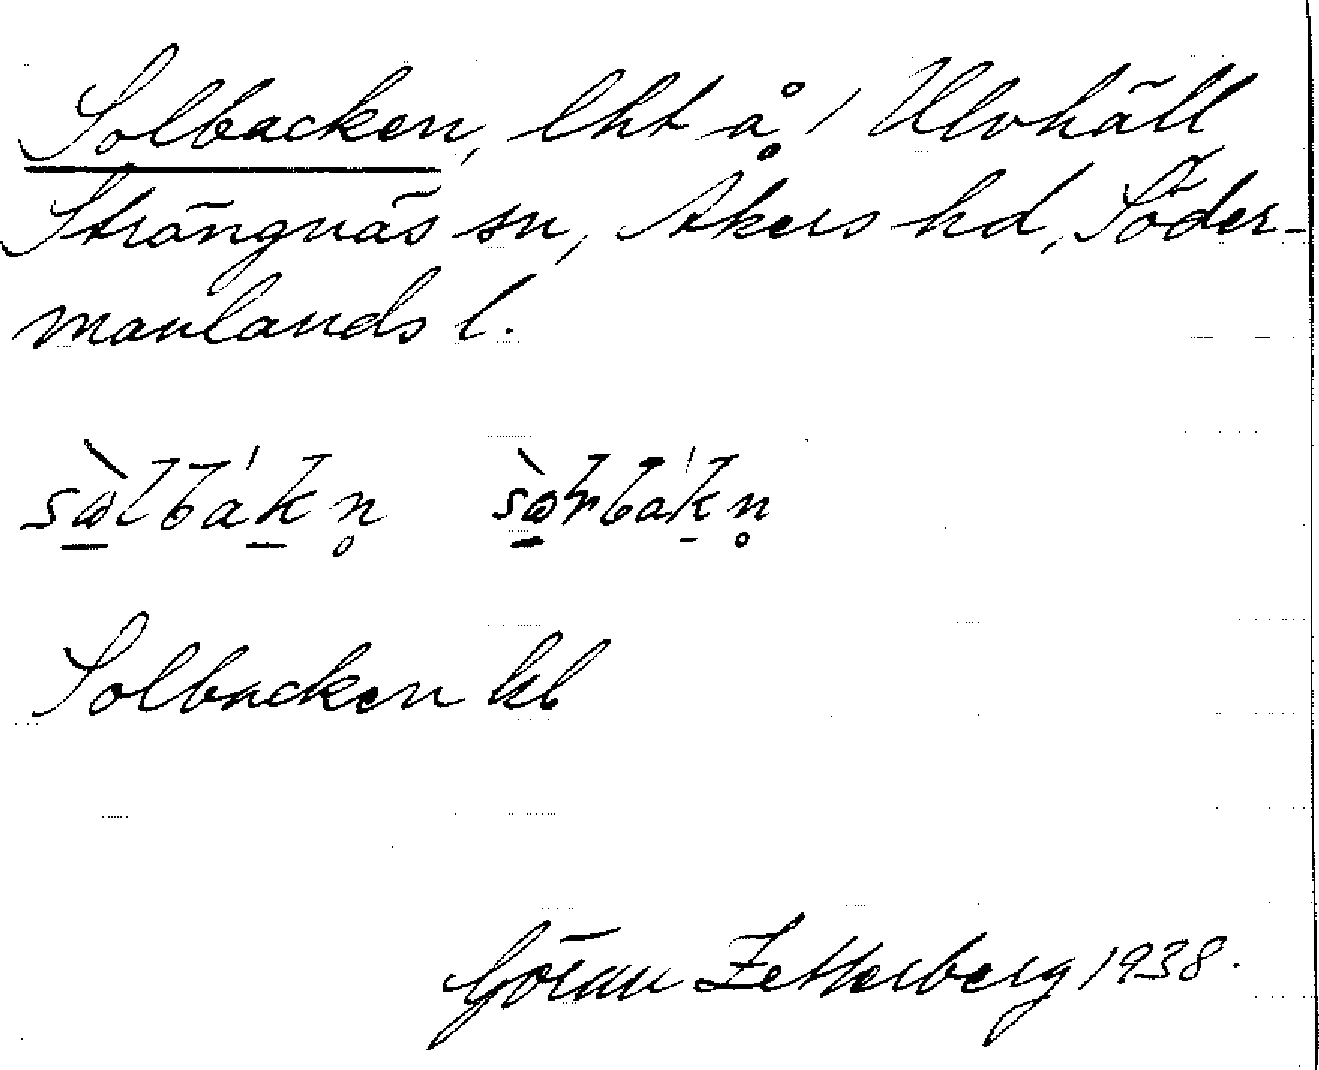 Solbacken, lht å 1 Ulvhäll
Strängnäs sn, Åkers hd, Söder-
manlands l.
Solbacken kb
Göran Zetterberg 1938.